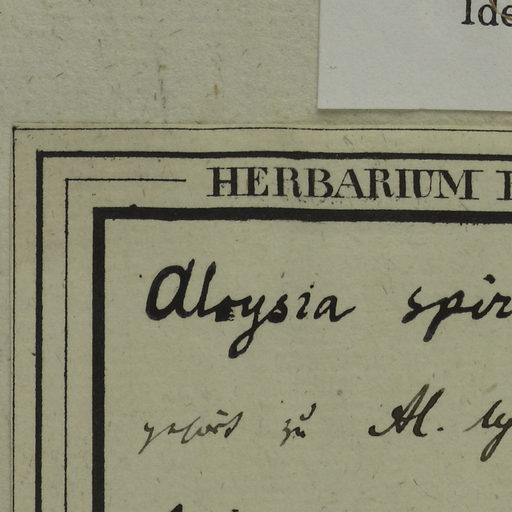 Ide
HERBARIUM
Aloysia spir
gehört zu Al. ly